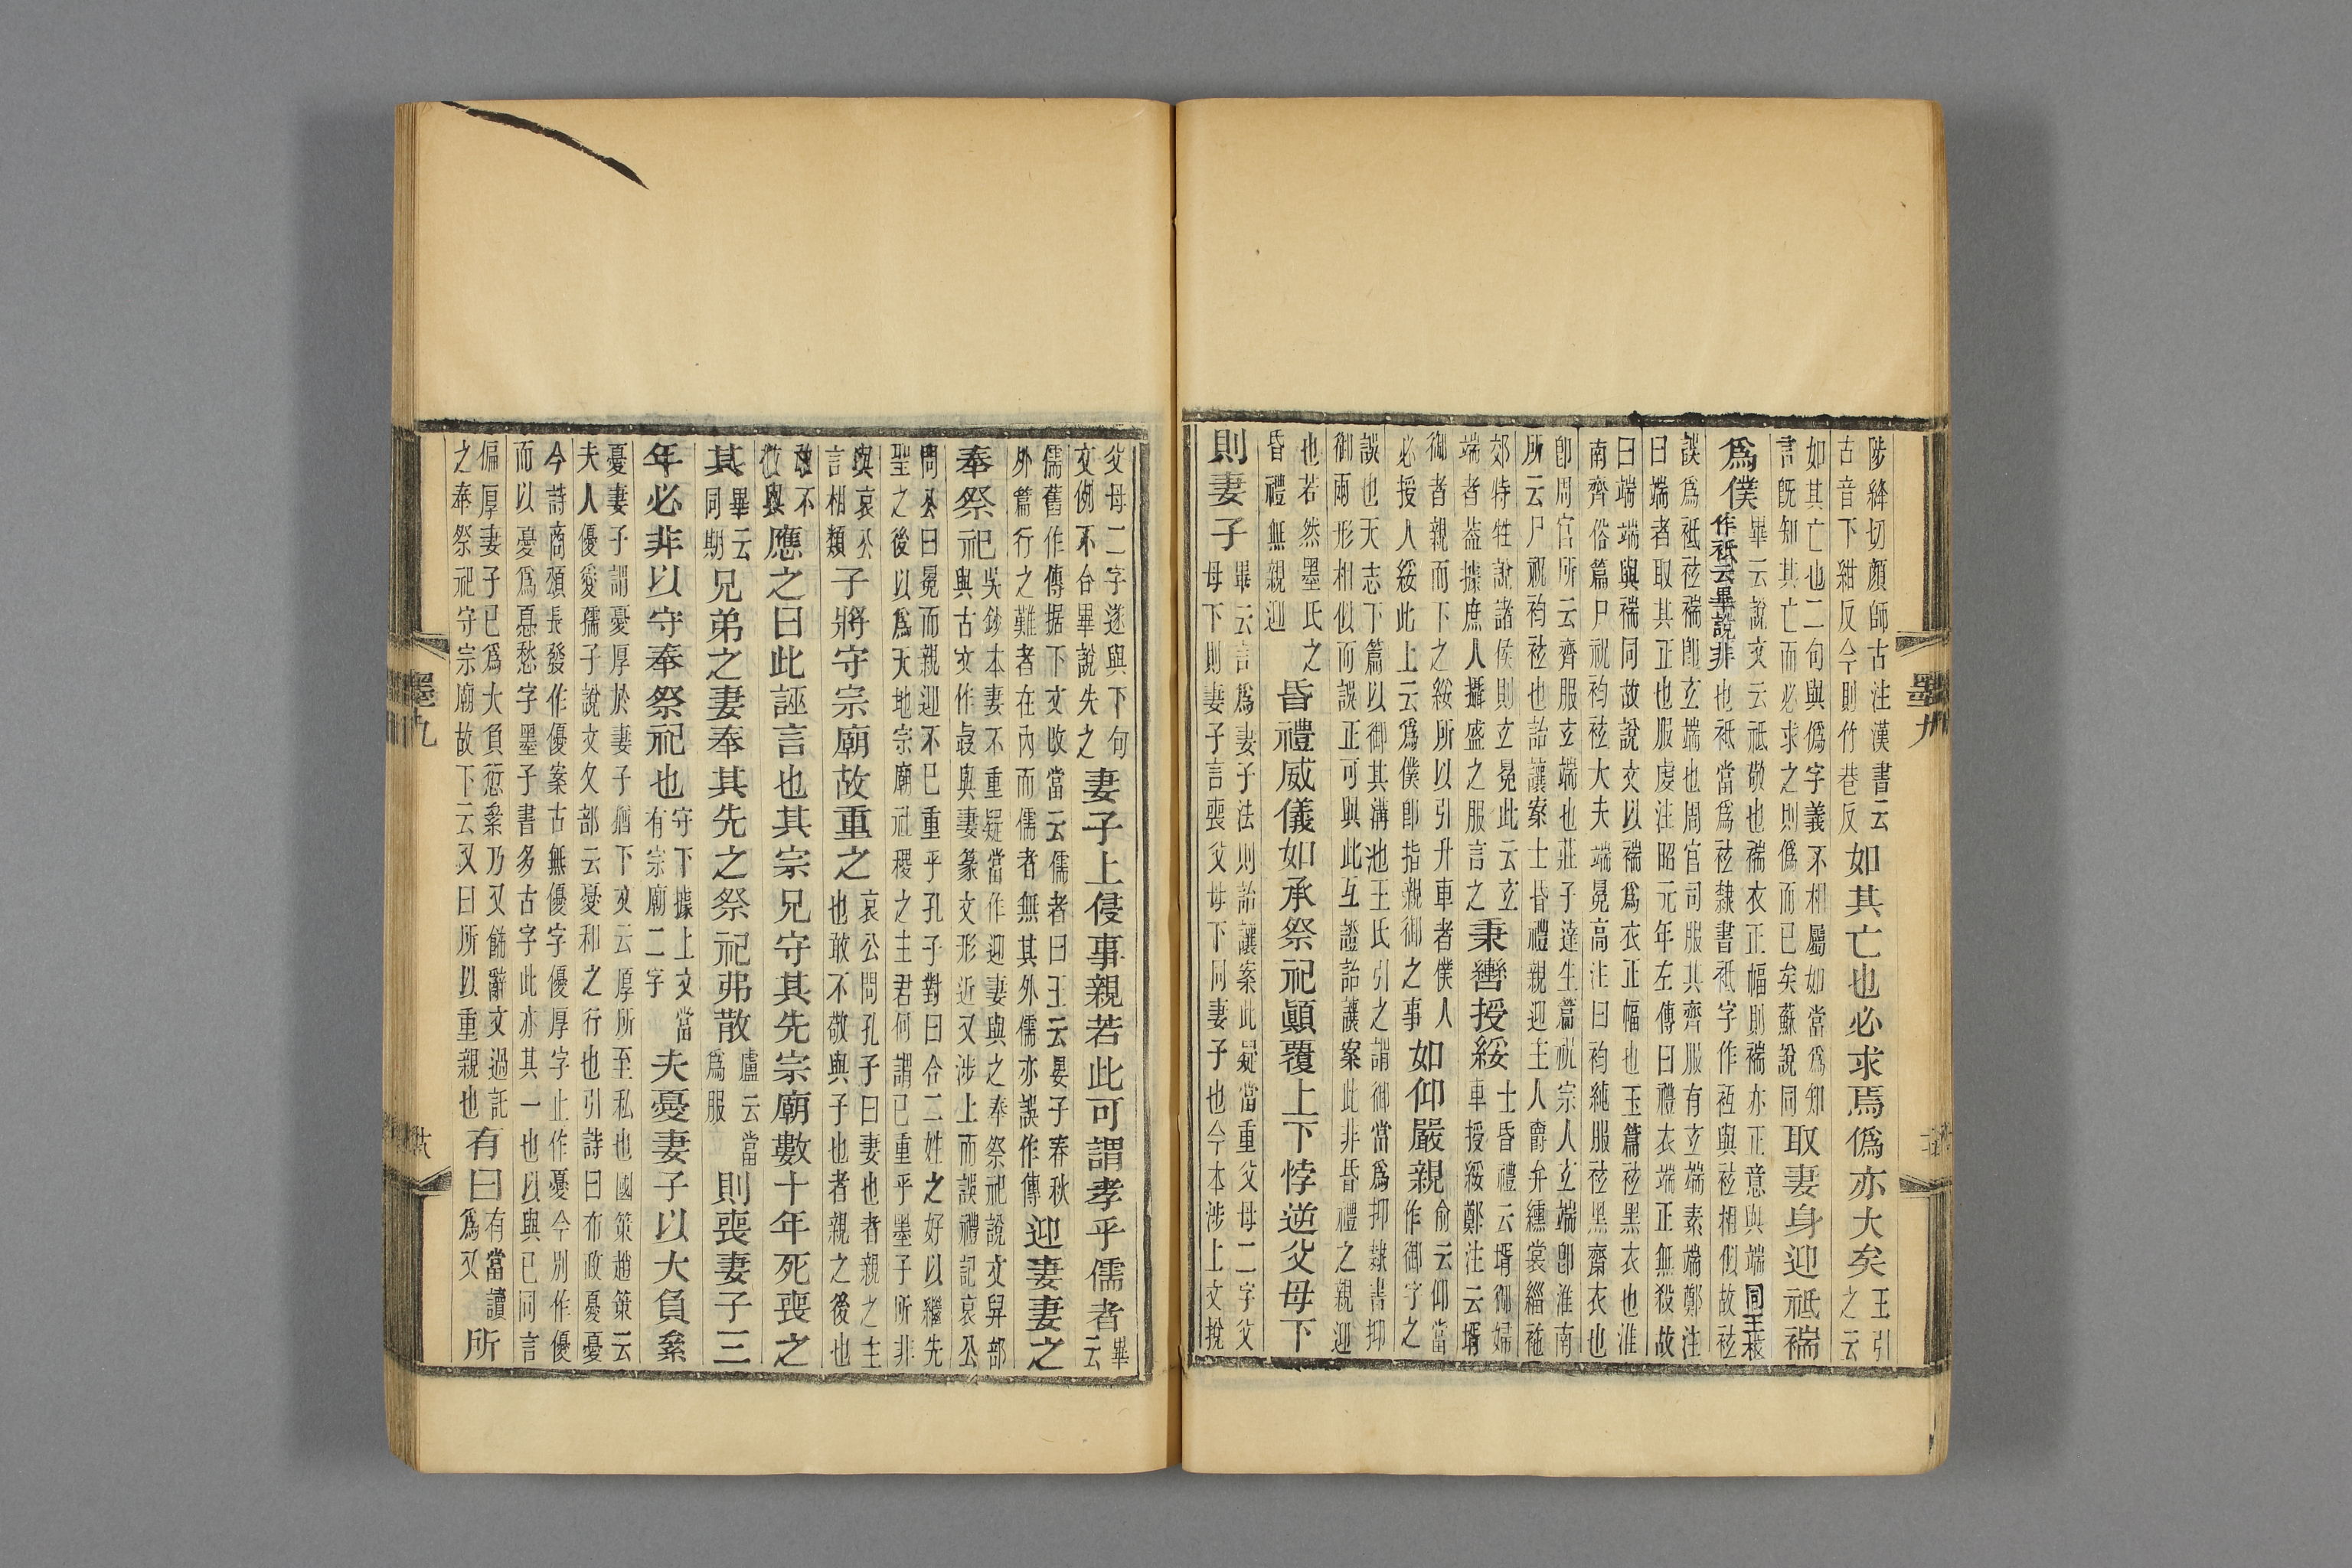 陟絳切顏師古注漢書云
古音下紺反今則竹巷反
如其亡也必求焉僞亦大矣
王引
之云
如其亡也二句與僞字義不相屬如當爲知
言旣知其亡而必求之則僞而已矣蘇說同
取妻身迎祗褍
爲僕
畢云說文云祗敬也褍衣正幅則褍亦正意與端同王
作祗云畢說非也祗當爲袨隸書祗字作袛與袨相似故袨
誤爲祗袨褍卽玄端也周官司服其齊服有玄端素端鄭注
曰端者取其正也服虔注昭元年左傳曰禮衣端正無殺故
曰端端與褍同故說文以褍爲衣正幅也玉篇袨黑衣也淮
南齊俗篇尸祝袀袨大夫端冕高注曰袀純服袨黑齋衣也
卽周官所云齊服玄端也莊子達生篇祝宗人玄端卽淮南
所云尸祝袀袨也詒讓案士昏禮親迎主人爵弁纁裳緇袘
郊特牲說諸侯則玄冕此云玄
端者葢據庶人攝盛之服言之
秉轡授綏
士昏禮云壻御婦
車授綏鄭注云壻
御者親而下之綏所以引升車者僕人
必授人綏此上云爲僕卽指親御之事
如仰嚴親
俞云仰當
作御字之
誤也天志下篇以御其溝池王氏引之謂御當爲抑隸書抑
御兩形相似而誤正可與此互證詒讓案此非昏禮之親迎
也若然墨氏之
昏禮無親迎
昏禮威儀如承祭祀顚覆上下悖逆父母下
則妻子
畢云言爲妻子法則詒讓案此疑當重父母二字父
母下則妻子言喪父母下同妻子也今本涉上文挩
墨九
父母二字遂與下句
文例不合畢說失之
妻子上侵事親若此可謂孝乎儒者
畢
云
儒舊作傳据下文改當云儒者曰王云晏子春秋
外篇行之難者在內而儒者無其外儒亦誤作傳
迎妻妻之
奉祭祀
吳鈔本妻不重疑當作迎妻與之奉祭祀說文舁部
與古文作𢍱與妻篆文形近又涉上而誤禮記哀公
問公曰冕而親迎不已重乎孔子對曰合二姓之好以繼先
聖之後以爲天地宗廟社稷之主君何謂已重乎墨子所非
與哀公
言相類
子將守宗廟故重之
哀公問孔子曰妻也者親之主
也敢不敬與子也者親之後也
敢不
敬與
應之曰此誣言也其宗兄守其先宗廟數十年死喪之
其
畢云
同期
兄弟之妻奉其先之祭祀弗散
盧云當
爲服
則喪妻子三
年必非以守奉祭祀也
守下據上文當
有宗廟二字
夫憂妻子以大負絫
憂妻子謂憂厚於妻子猶下文云厚所至私也國策趙策云
夫人優愛孺子說文夊部云憂和之行也引詩曰布政憂憂
今詩商頌長發作優案古無優字優厚字止作憂今別作優
而以憂爲惪愁字墨子書多古字此亦其一也以與已同言
偏厚妻子已爲大負愆絫乃又飾辭文過託
之奉祭祀守宗廟故下云又曰所以重親也
有曰
有當讀
爲又
所
墨九